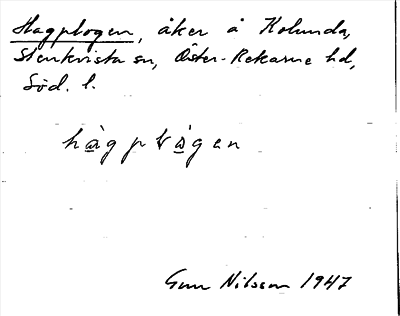 Hagplogen, åker å Kolunda,
Stenkvista sn, Öster-Rekarne hd,
Söd. l.
hàgplògen
Gun Nilsson 1947